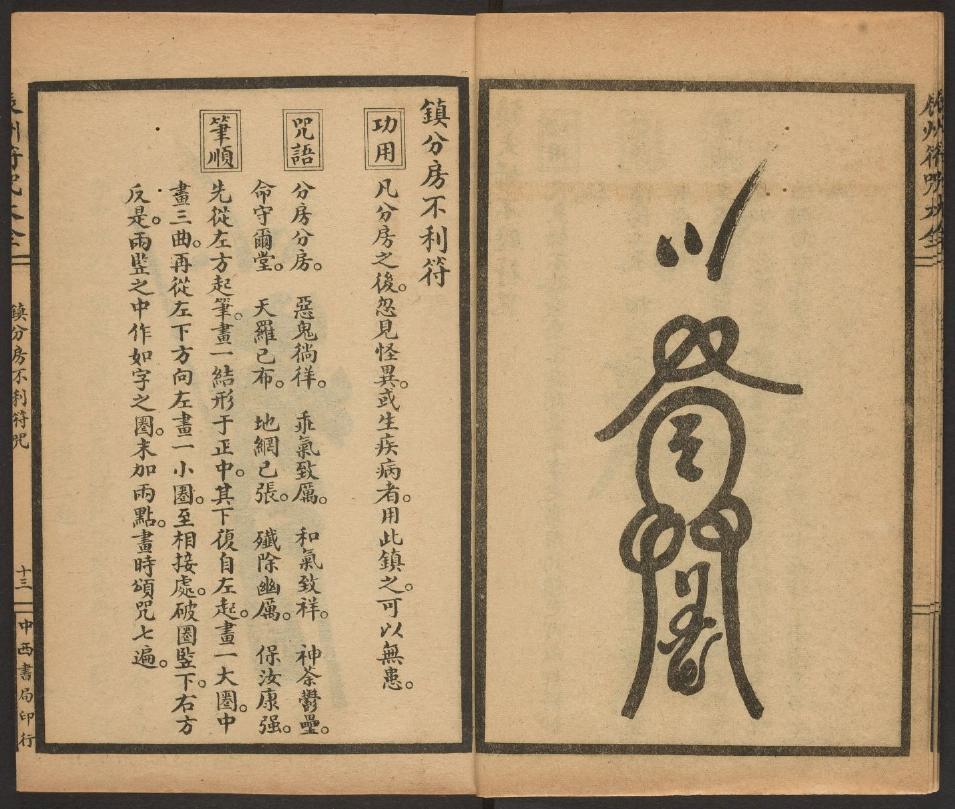 鎮分房不利符
功用
凡分房之後。忽見怪異。或生疾病者。用此鎮之。可以無患。
咒語
分房分房。惡鬼徜徉。乖氣致厲。和氣致祥。神荼鬱壘。
命守爾堂。天羅已布。地網已張。殲除幽厲。保汝康强。
筆順
先從左方起筆。畫一結形于正中。其下復自左起。畫一大圈。中
畫三曲。再從左下方向左畫一小圈。至相接處。破圈豎下。右方
反是。兩豎之中作如字之圈。末加兩點。畫時頌咒七遍。
鎮分房不利符咒
十三
中西書局印行